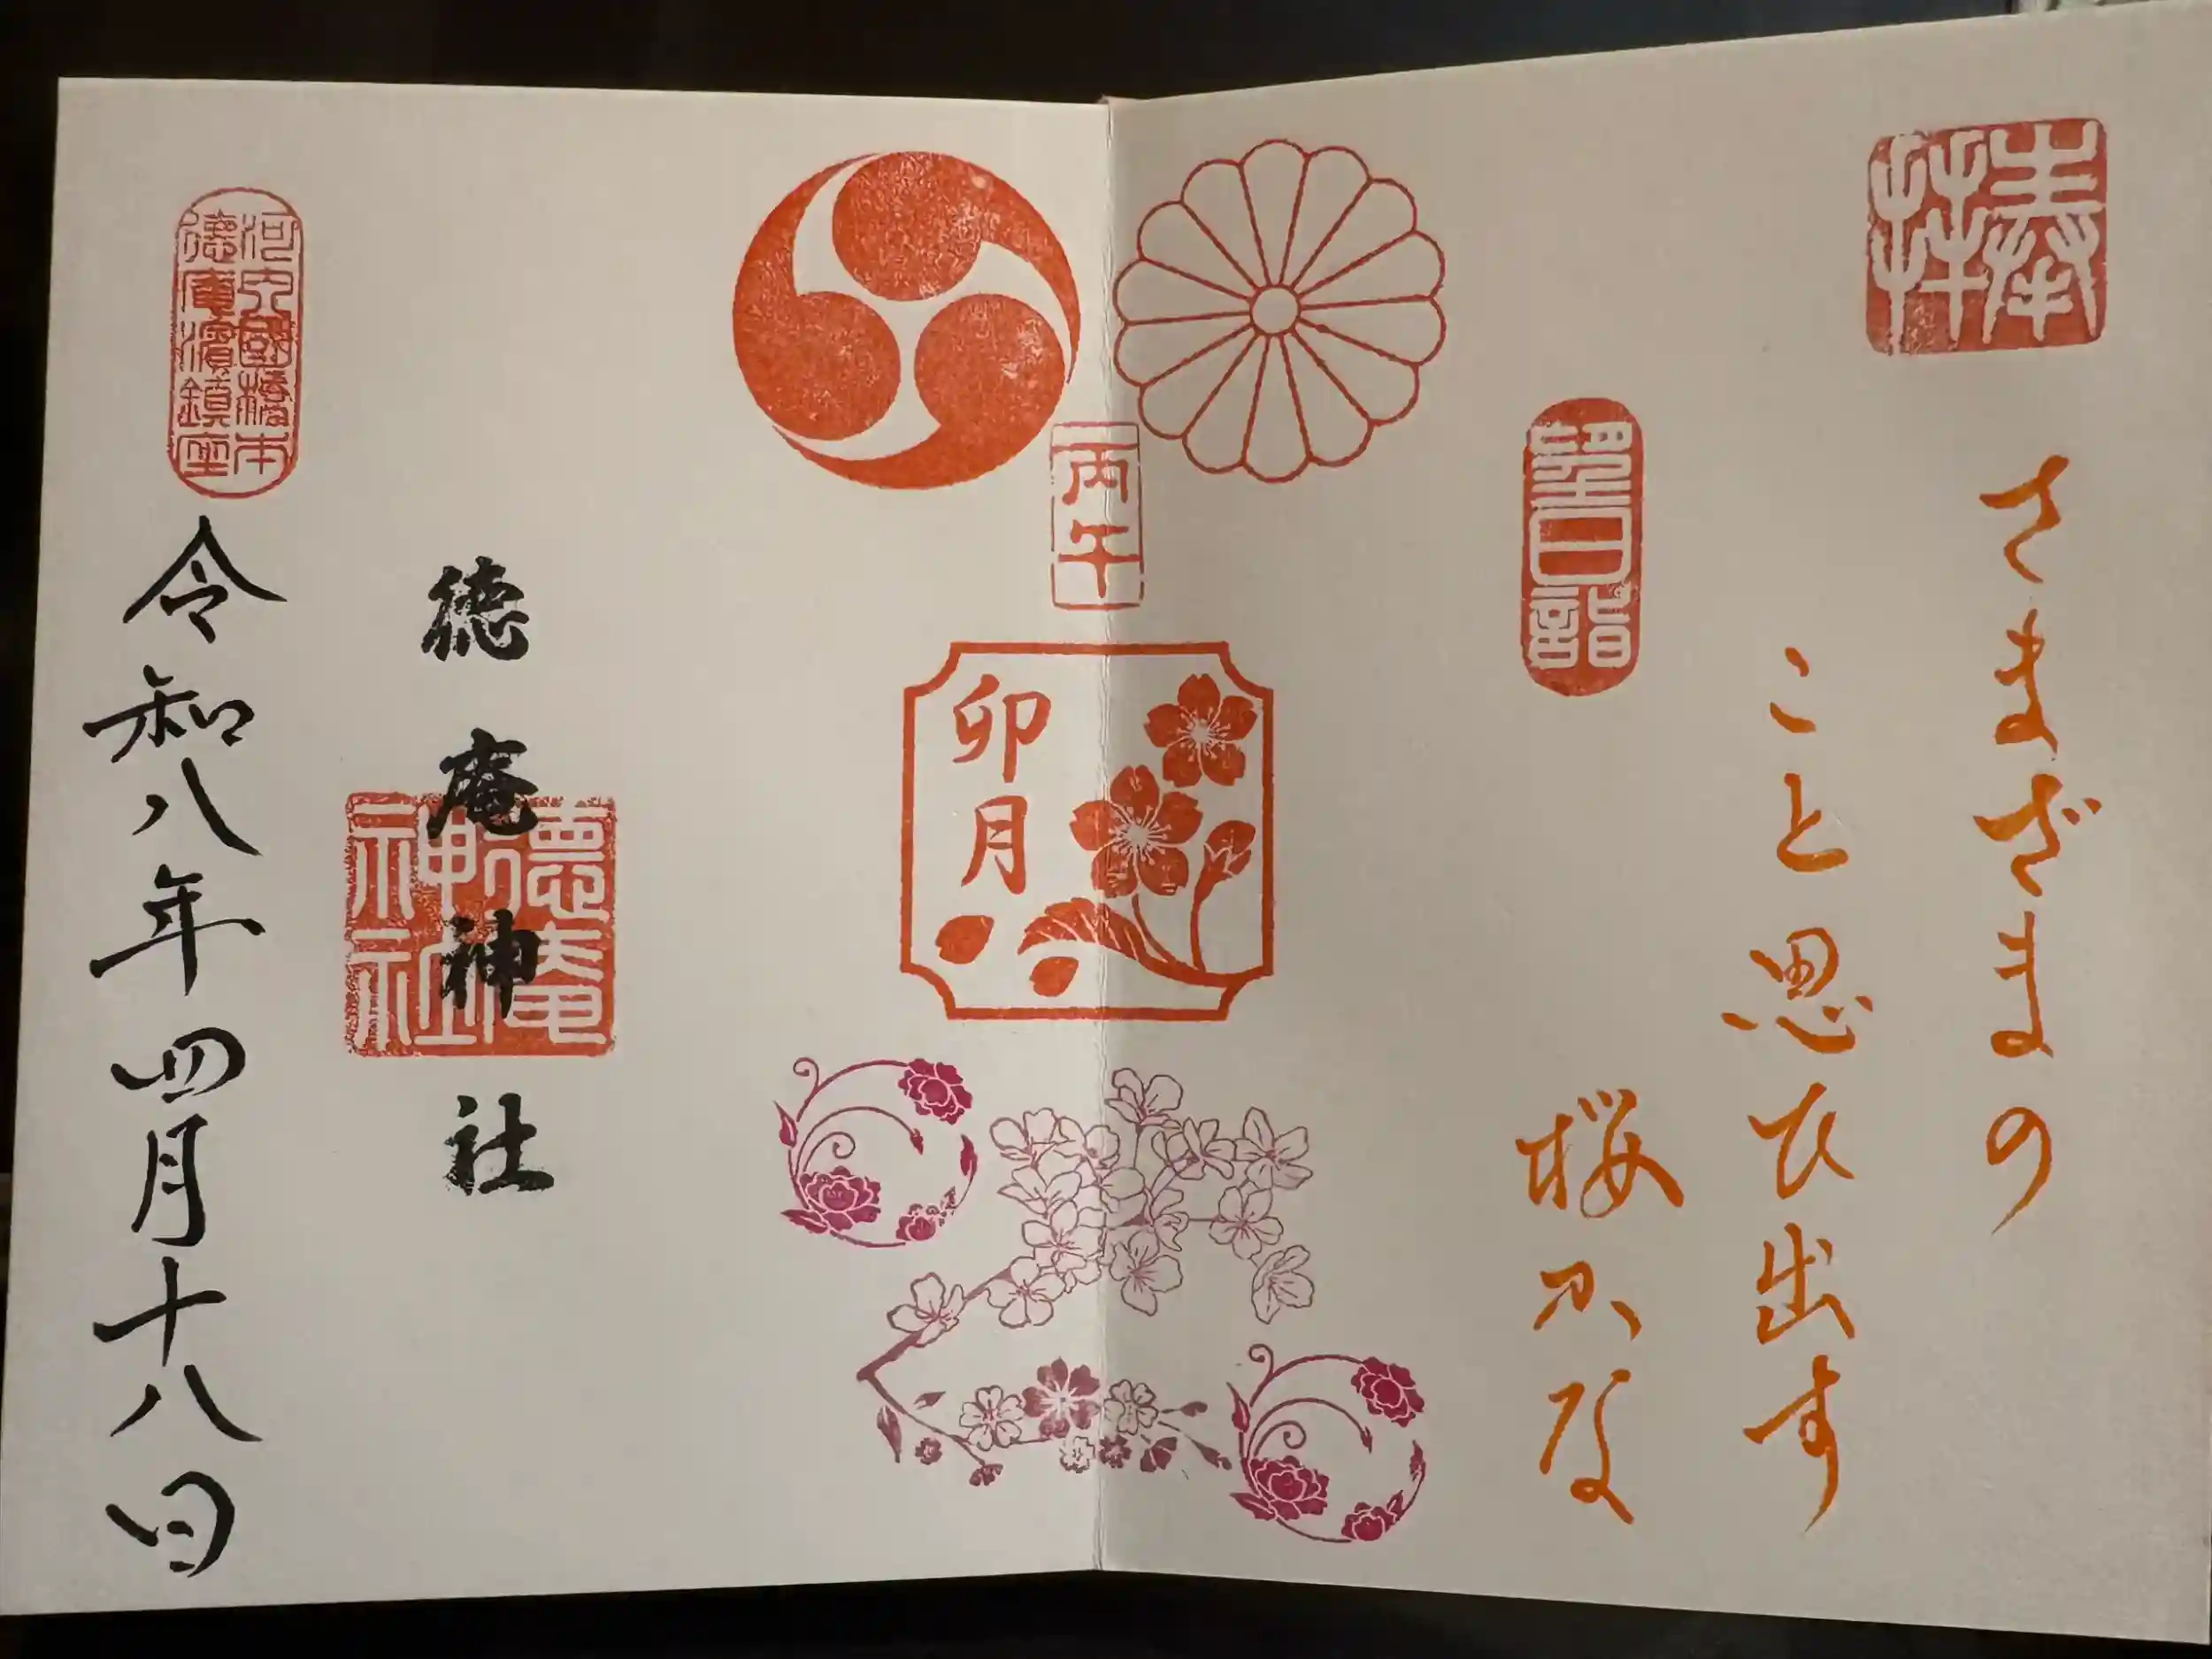 奉拝
さまざまの
こと思ひ出す
桜かな
丙午
卯月
徳庵神社
德庵
神社
河内國橋本
德庵濱鎮座
令和八年四月十八日